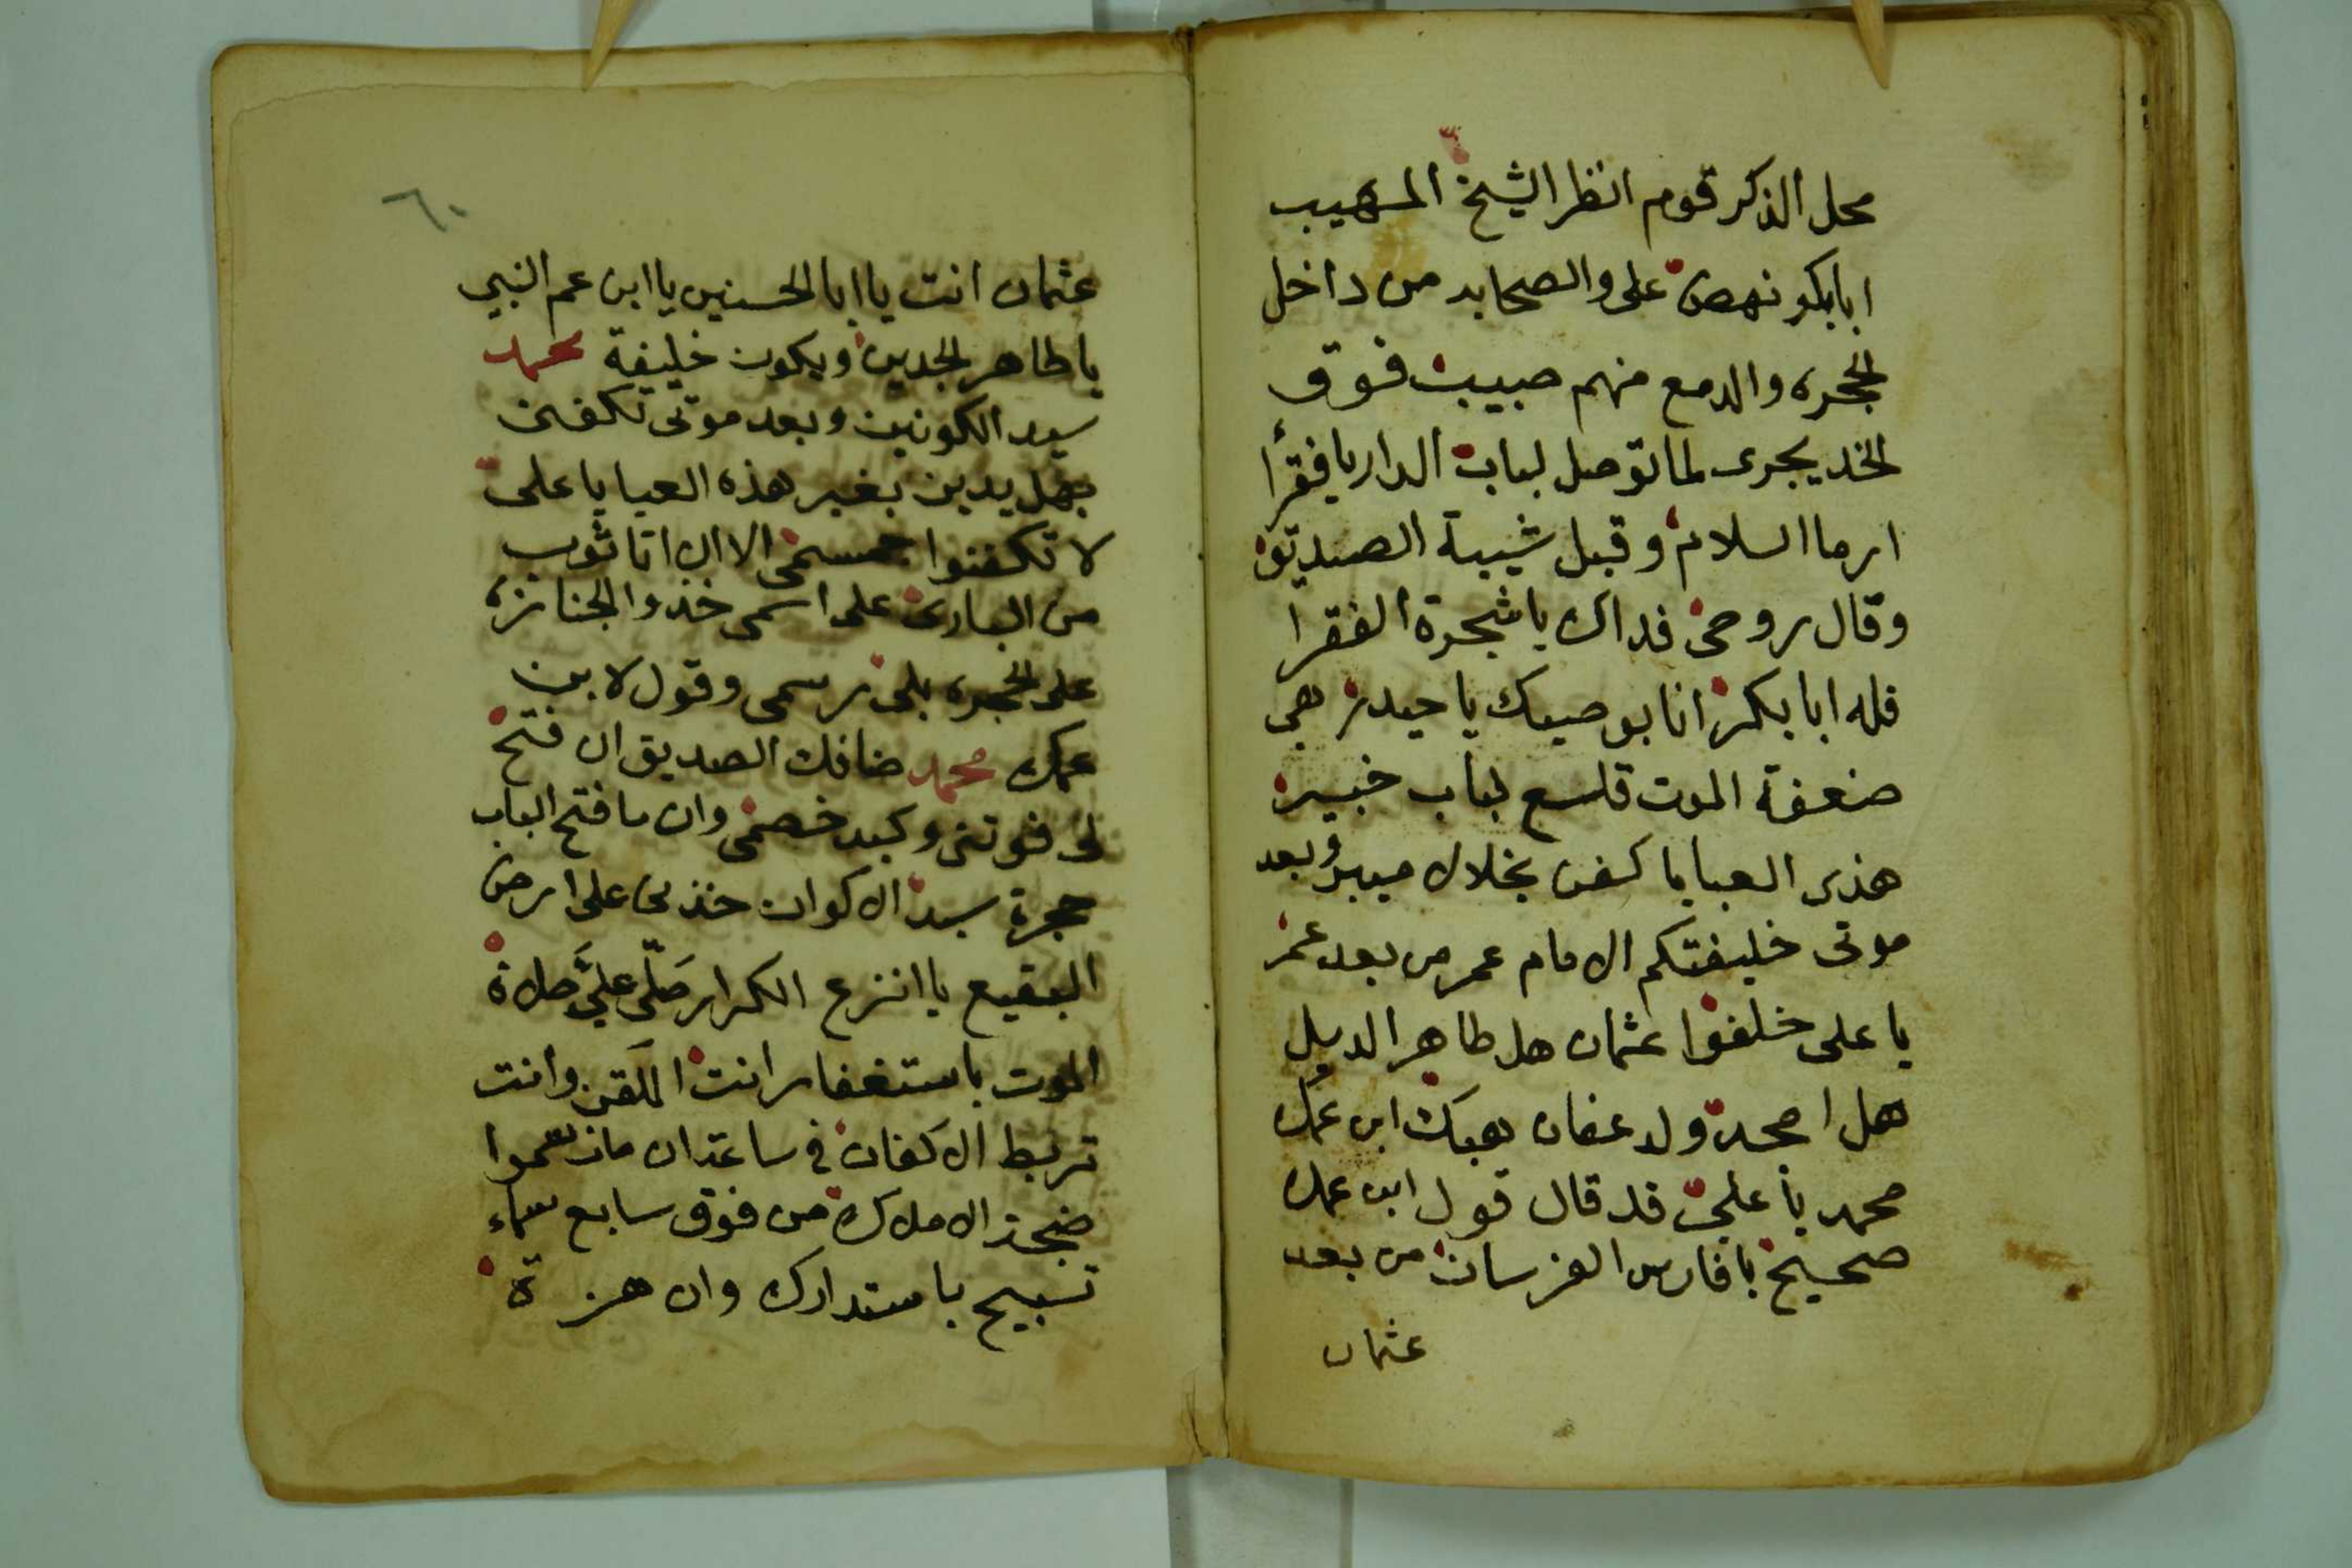 محل الذكر قوم انظر الشيخ المهيب
ابا بكر نهض على والصحابه من داخل
الحجره والدمع منهم صبيب فوق
الخد يجرى لما توصل لباب الدار يا فقرأ
ارما السلام وقبل شيبة الصديق
وقال روحى فداك يا شجرة الفقرا
قله ابا بكر انا بوصيك يا حيدر هى
ضعفة الموت قلسع لباب خيبر
هذى العبا يا كفن بخلال ميبر وبعد
موتى خليفتكم الامام عمر من بعد عمر
يا على خلفوا عثمان هل طاهر الديل
هل امجد ولد عفان بعبك ابن عمك
محمد يا على قد قال قول ابن عمك
صحيح يا فارس الفرسان من بعد
عثمان
٦٠
عثمان انت يا ابا الحسنين يا ابن عم النبي
يا طاهر الجدين ويكون خليفة محمد
سيد الكونين وبعد موتى تكفن
يدين بغير هذه العبا يا على
لا تكفنوا جسمى الا ان اتا ثوب
من البارئ على اسمى خذوا الجنازه
على الحجره بلى رسمى وقول لابن
عمك محمد ضافك الصديق ان فتح
لى فوتنى وكيد خصمى وان ما فتح الباب
حجرة سيد الاكوان خذنى على ارض
البقيع يا انزع الكرار صَلّى عليَّ صلاة
الموت باستغفار انت المَلقن وانت
تربط الاكفان فى ساعتدان مان سمعوا
ضجة الاملاك من فوق سابع سماء
تسبيح باستدارك وان هزة